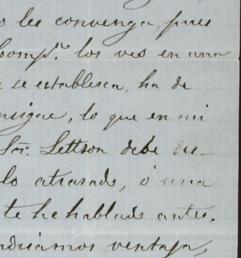 o les convenga, pues
Comp.ª los veo en una
e se establesca, ha de
nsigue, lo que en mi
Sor. Lettson debe des-
lo atrasado, ó una
te he hablado antes.
ndriamos ventaja,